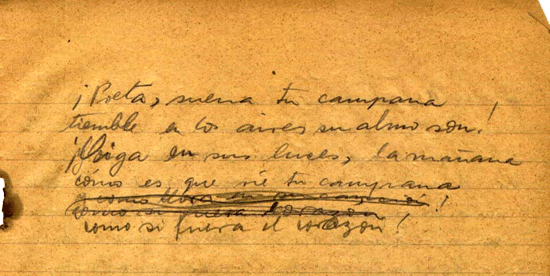 ¡Poeta, suena tu campana!
tiemble en los aires su almo son!
¡Oiga en sus luces, la mañana
cómo es que ríe tu campana
como si fuera corazón
como si fuera el corazón!